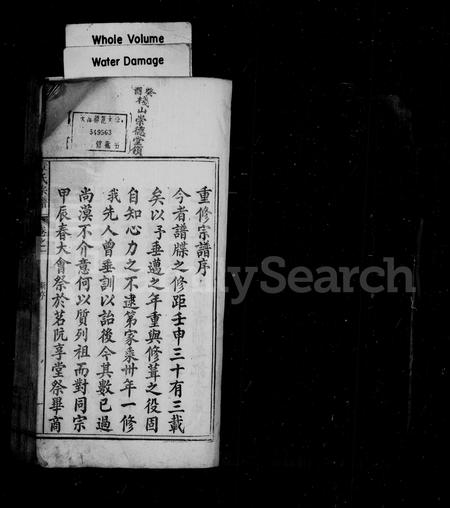 Whole Volume
Water Damage
癸酉
棧山崇德堂領
549563
重修宗譜序
今者譜牒之修距壬申三十有三載
矣以予垂邁之年重與修葺之役固
自知心力之不逮第家乘卅年一修
我先人曾垂訓以詒後今其數已過
尚漠不介意何以質列祖而對同宗
甲辰春大會祭於茗阮享堂祭畢商
FamilySearch